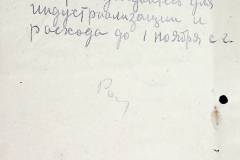 для
индустриализации и
расхода до 1 ноября с.г.